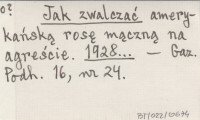 o? Jak zwalczać amery-
kańską rosę mączną na
agreście. 1928... — Gaz.
Podh. 16, nr 24.